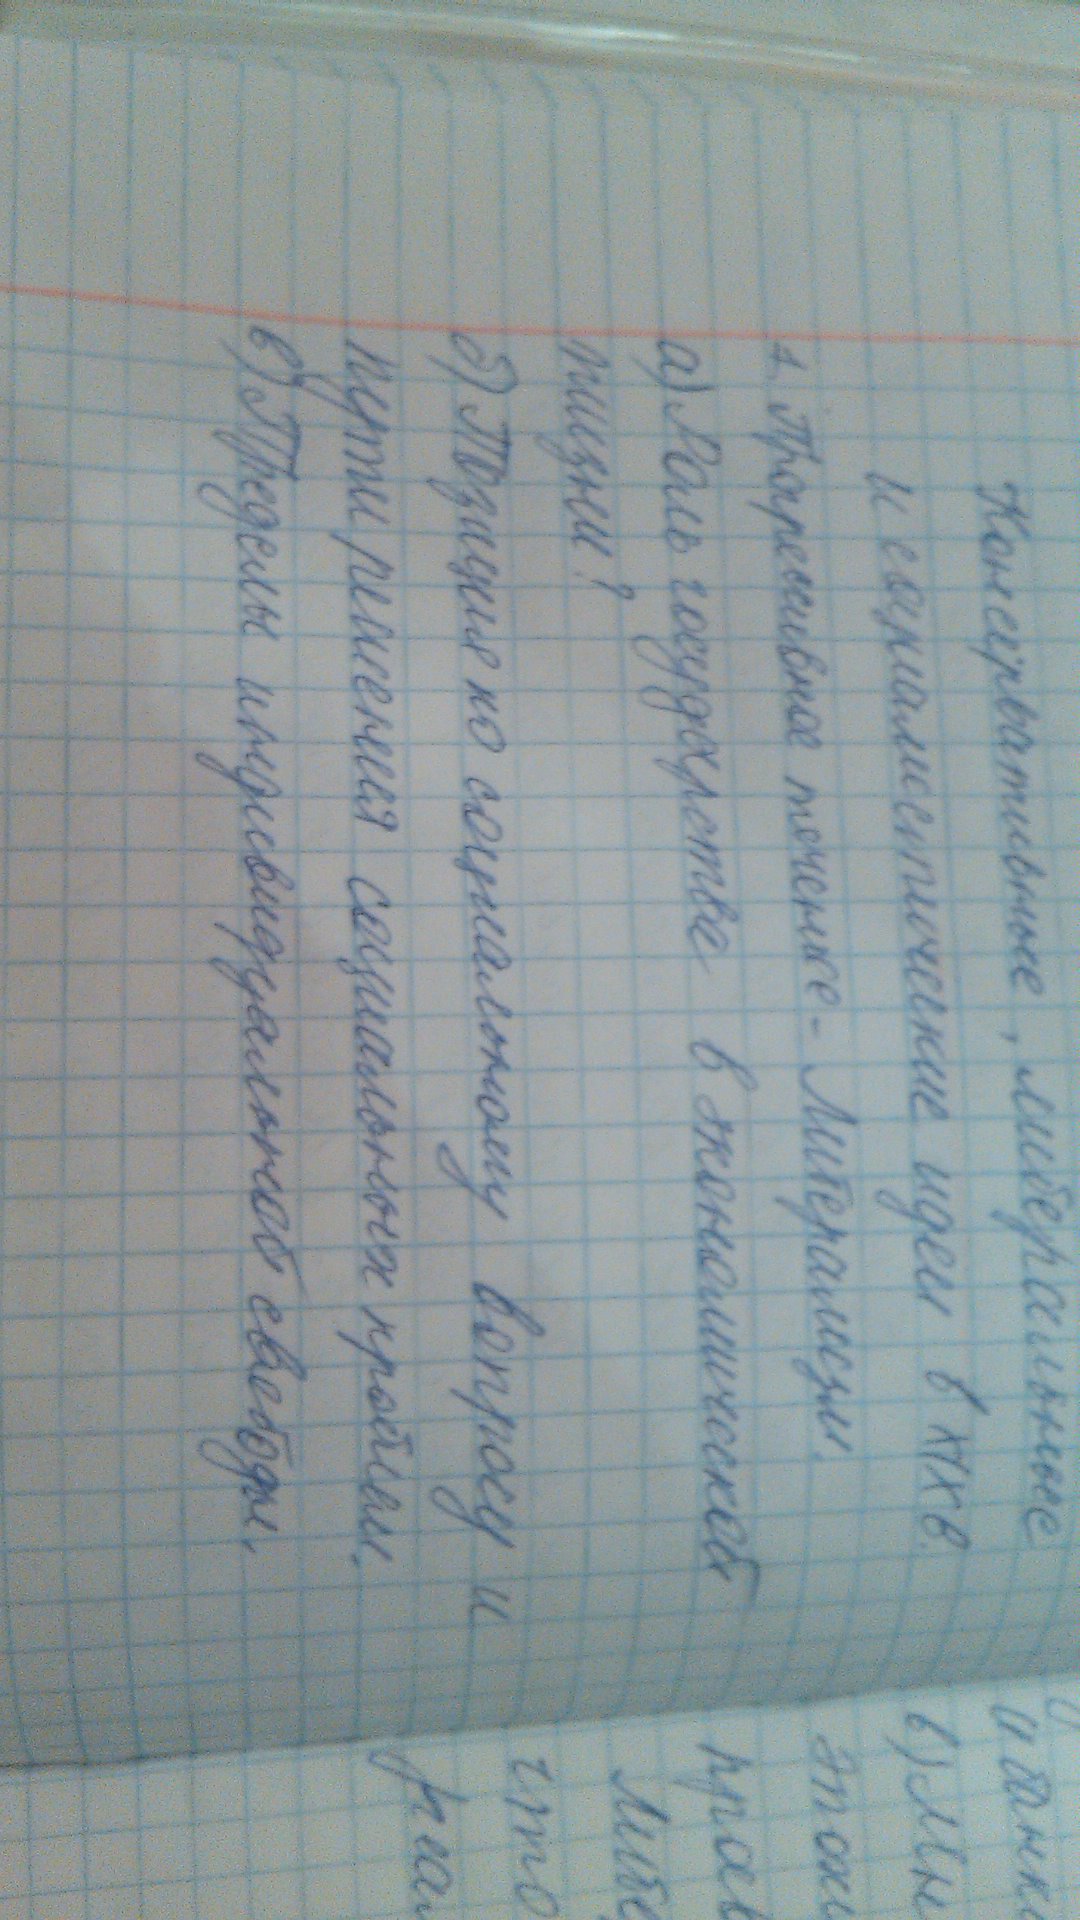 Консервативные, либеральные
и социалистические идеи в XIX в.
1. Прогрессивное течение - Либерализм.
а) Роль государства в экономической
жизни?
б) Позиция по социальному вопросу и
пути решения социальных проблем.
в) Пределы индивидуальной свободы.